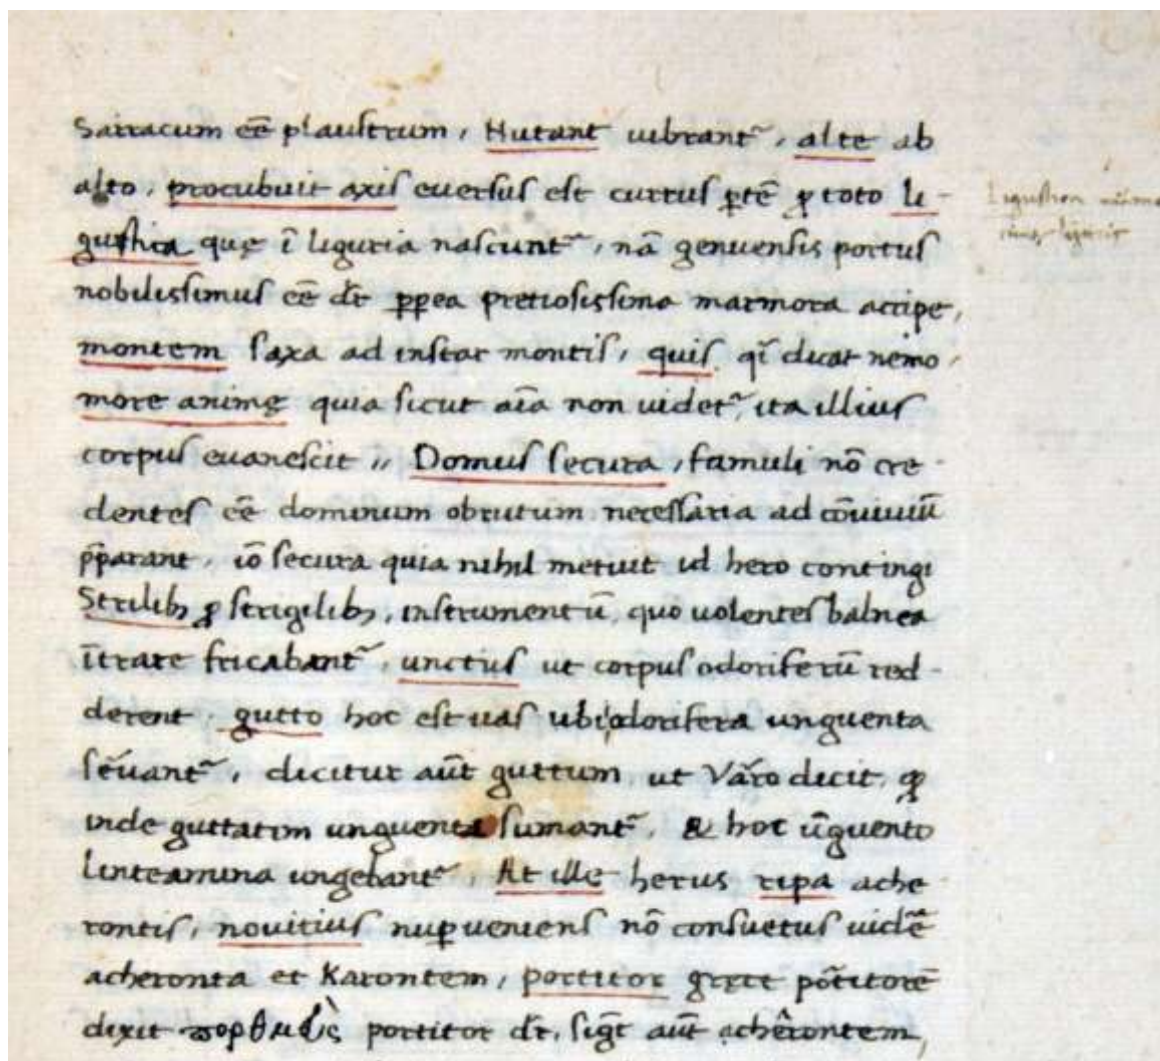 Sarracum eē plaustrum, Nutant uibrant᷑, alte ab
alto, procubuit axis euersus est currus ꝑtē ꝓ toto li-
gustica quę ī liguria nascunt᷑, nā genuensis portus
nobilissimus eē dr̄ ꝓpea pretiosissima marmora accipe,
montem saxa ad instar montis, quis qī dicat nemo,
more animę quia sicut aīa non uidet᷑, ita illius
corpus euanescit ,, Domus secura, famuli nō cre-
dentes eē dominum obrutum necessaria ad cōuiuiū
p̄parant, iō secura quia nihil metuit id hero contingi
Strilibꝫ ꝓ strigilibꝫ, instrumentū, quo uolentes balnea
ītrare fricabant᷑, unctius ut corpus odoriferū red-
derent, gutto hoc est uas ubi odorifera unguenta
seruant᷑, dicitur aūt guttum, ut Varo dicit, ꝙ
inde guttatim unguenta sumant᷑, & hoc ūguento
linteamina ungebant᷑, At ille herus ripa ache
rontis, nouitius nuꝑ ueniens nō consuetus uidē
acheronta et Karontem, portitor grece portitorē
dixit portitor dr̄, sigt aūt acherontem,
Ligusticon